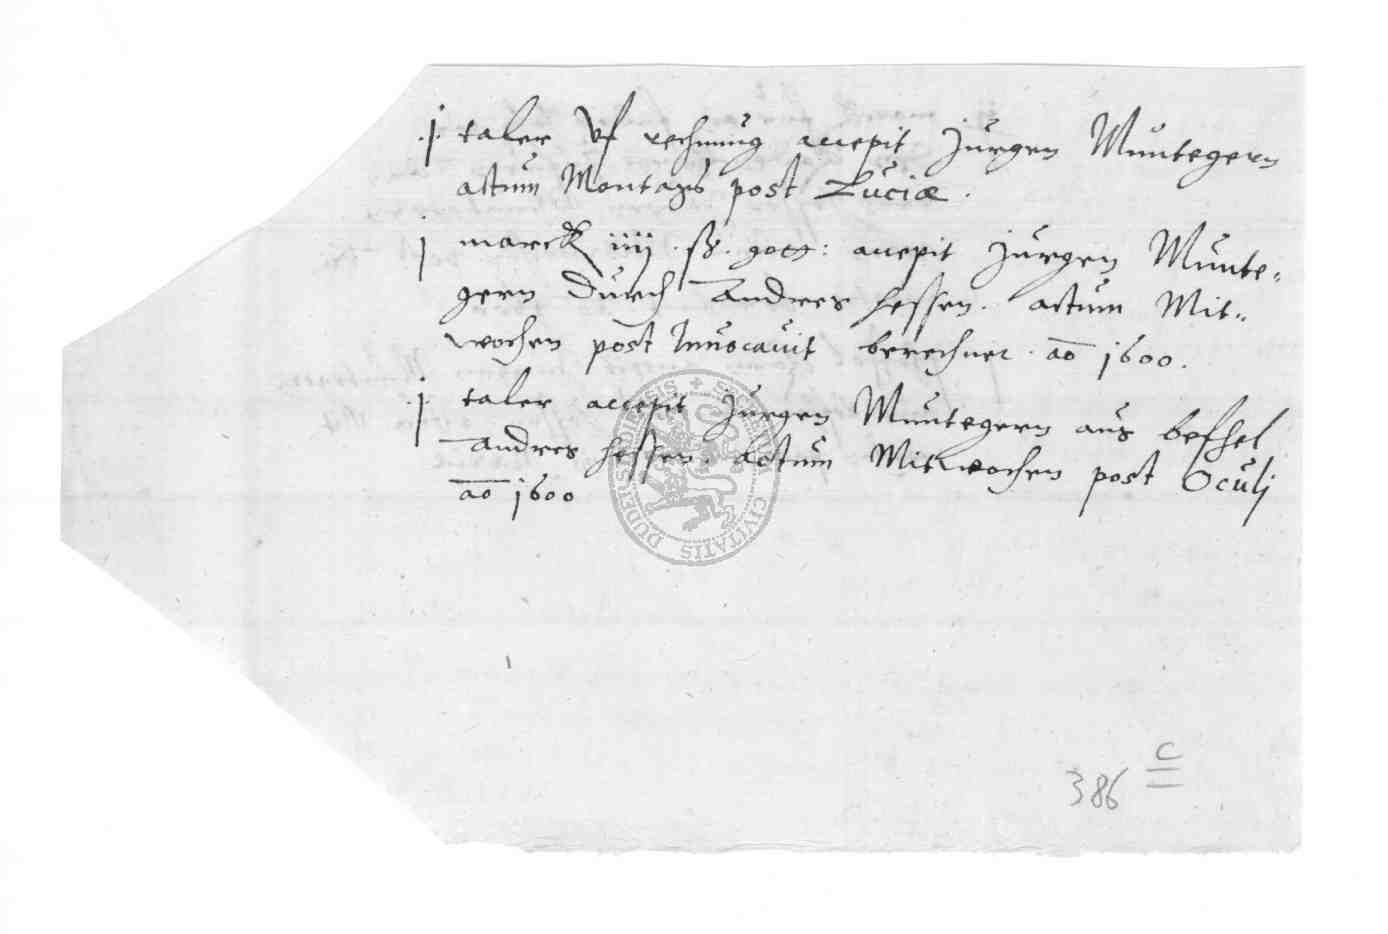 .j. taler vf rechnung accepit Jurgen Muntegern
actum Montags post Luciæ.
j marck iiij . ß. gott: accepit Jurgen Munte-
gern durch Andres Hessen. actum Mit-
wochen post Inuocauit berechnet . ao 1600.
.j. taler accepit Jurgen Muntegern aus befhel
Andres Hessen. actum Mitwochen post Oculj
ao 1600
SECRETUM CIVITATIS DUDERSTADENSIS
386 c